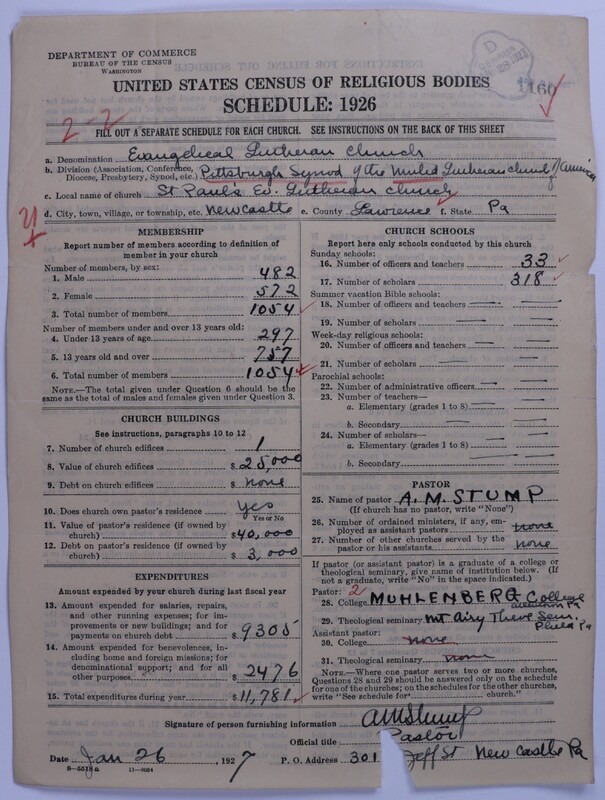 DEPARTMENT OF COMMERCE
BUREAU OF THE CENSUS
WASHINGTON
1160
UNITED STATES CENSUS OF RELIGIOUS BODIES
SCHEDULE: 1926
2-2
FILL OUT A SEPARATE SCHEDULE FOR EACH CHURCH. SEE INSTRUCTIONS ON THE BACK OF THIS SHEET
a. Denomination Evangelical Lutheran Church
b. Division (Association, Conference, Diocese, Presbytery, Synod, etc.) Pittsburgh Synod of the United Lutheran Church of America
c. Local name of church St Paul's Ev. Lutheran Church
d. City, town, village, or township, etc. New Castle e. County Lawrence f. State Pa
MEMBERSHIP
Report number of members according to definition of
member in your church
Number of members, by sex:
1. Male 482
2. Female 572
3. Total number of members 1054
Number of members under and over 13 years old:
4. Under 13 years of age 297
5. 13 years old and over 757
6. Total number of members 1054
NOTE.—The total given under Question 6 should be
same as the total of males and females given under Question 3.
CHURCH BUILDINGS
See instructions, paragraphs 10 to 12
7. Number of church edifices 1
8. Value of church edifices $ 25,000
9. Debt on church edifices $ None
10. Does church own pastor's residence? Yes
Yes or No
11. Value of pastor's residence (if owned by
church) $40,000
12. Debt on pastor's residence (if owned by
church) $ 3,000
EXPENDITURES
Amount expended by your church during last fiscal year
13. Amount expended for salaries, repairs,
and other running expenses; for im-
provements or new buildings; and for
payments on church debt $ 9305
14. Amount expended for benevolences,
including home and foreign missions; for
denominational support; and for all
other purposes $ 2476
15. Total expenditures during year $11,781
CHURCH SCHOOLS
Report here only schools conducted by this church
Sunday schools:
16. Number of officers and teachers 33
17. Number of scholars 318
Summer vacation Bible schools:
18. Number of officers and teachers
19. Number of scholars
Week-day religious schools:
20. Number of officers and teachers
21. Number of scholars
Parochial schools:
22. Number of administrative officers
23. Number of teachers—
a. Elementary (grades 1 to 8)
b. Secondary
24. Number of scholars—
a. Elementary (grades 1 to 8)
b. Secondary
PASTOR
25. Name of pastor A. M. STUMP
(If church has no pastor, write "None")
26. Number of ordained ministers, if any, em-
ployed as assistant pastors none
27. Number of other churches served by the
pastor or his assistants none
If pastor (or assistant pastor) is a graduate of a college or
theological seminary, give name of institution below. (If
not a graduate, write "No" in the space indicated.)
Pastor: 2
28. College MUHLENBERG College
Allentown Pa
29. Theological seminary Mt Airy Theo Sem.
Phila Pa
Assistant pastor:
30. College none
31. Theological seminary none
NOTE.—Where one pastor serves two or more churches,
Questions 28 and 29 should be answered only on the schedule
for one of the churches; on the schedules for the other churches,
write "See schedule for church."
Signature of person furnishing information AMStump
Official title Pastor
Date Jan 26, 1927 P. O. Address 301 Jeff St New Castle Pa
8-5518a 11-9064